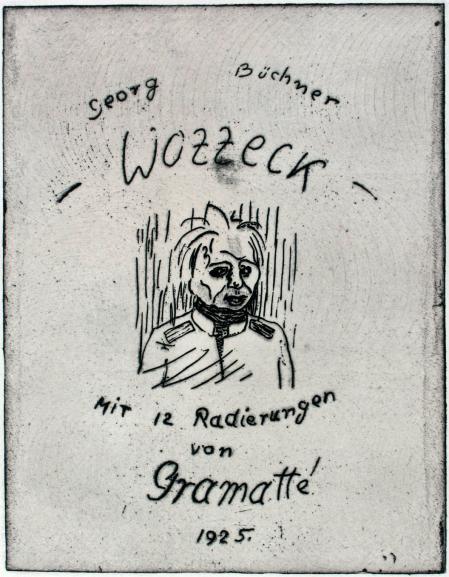 Georg Büchner
Wozzeck
Mit 12 Radierungen
von
Gramatté
1925.